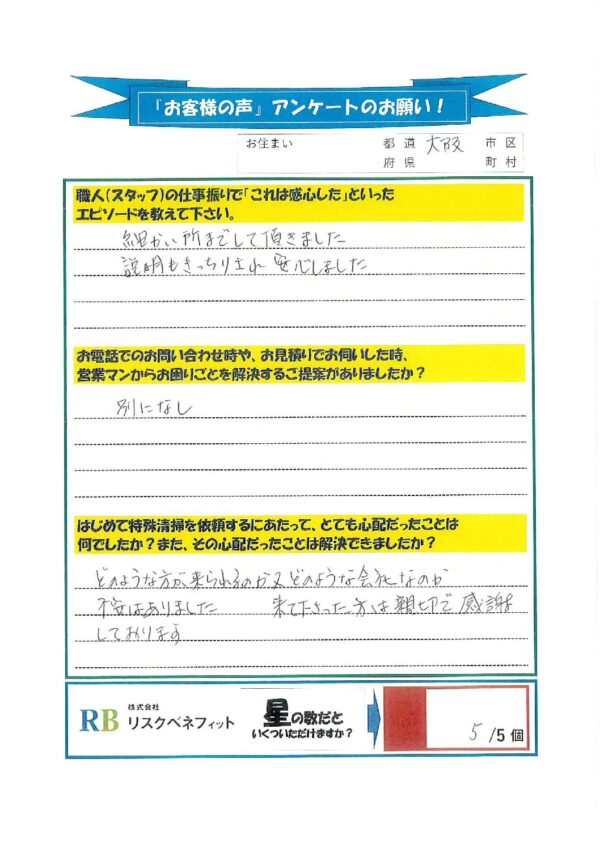 『お客様の声』アンケートのお願い！
お住まい 都道府県 大阪 市区町村
職人（スタッフ）の仕事振りで「これは感心した」といった
エピソードを教えて下さい。
細かい所までして頂きました
説明もきっちりされ 安心しました
お電話でのお問い合わせ時や、お見積りでお伺いした時、
営業マンからお困りごとを解決するご提案がありましたか？
別になし
はじめて特殊清掃を依頼するにあたって、とても心配だったことは
何でしたか？また、その心配だったことは解決できましたか？
どのような方が来られるのか又どのような会社なのか
不安はありました 来て下さった方は親切で感謝
しております
RB 株式会社
リスクベネフィット
星の数だと
いくついただけますか？
5/5個